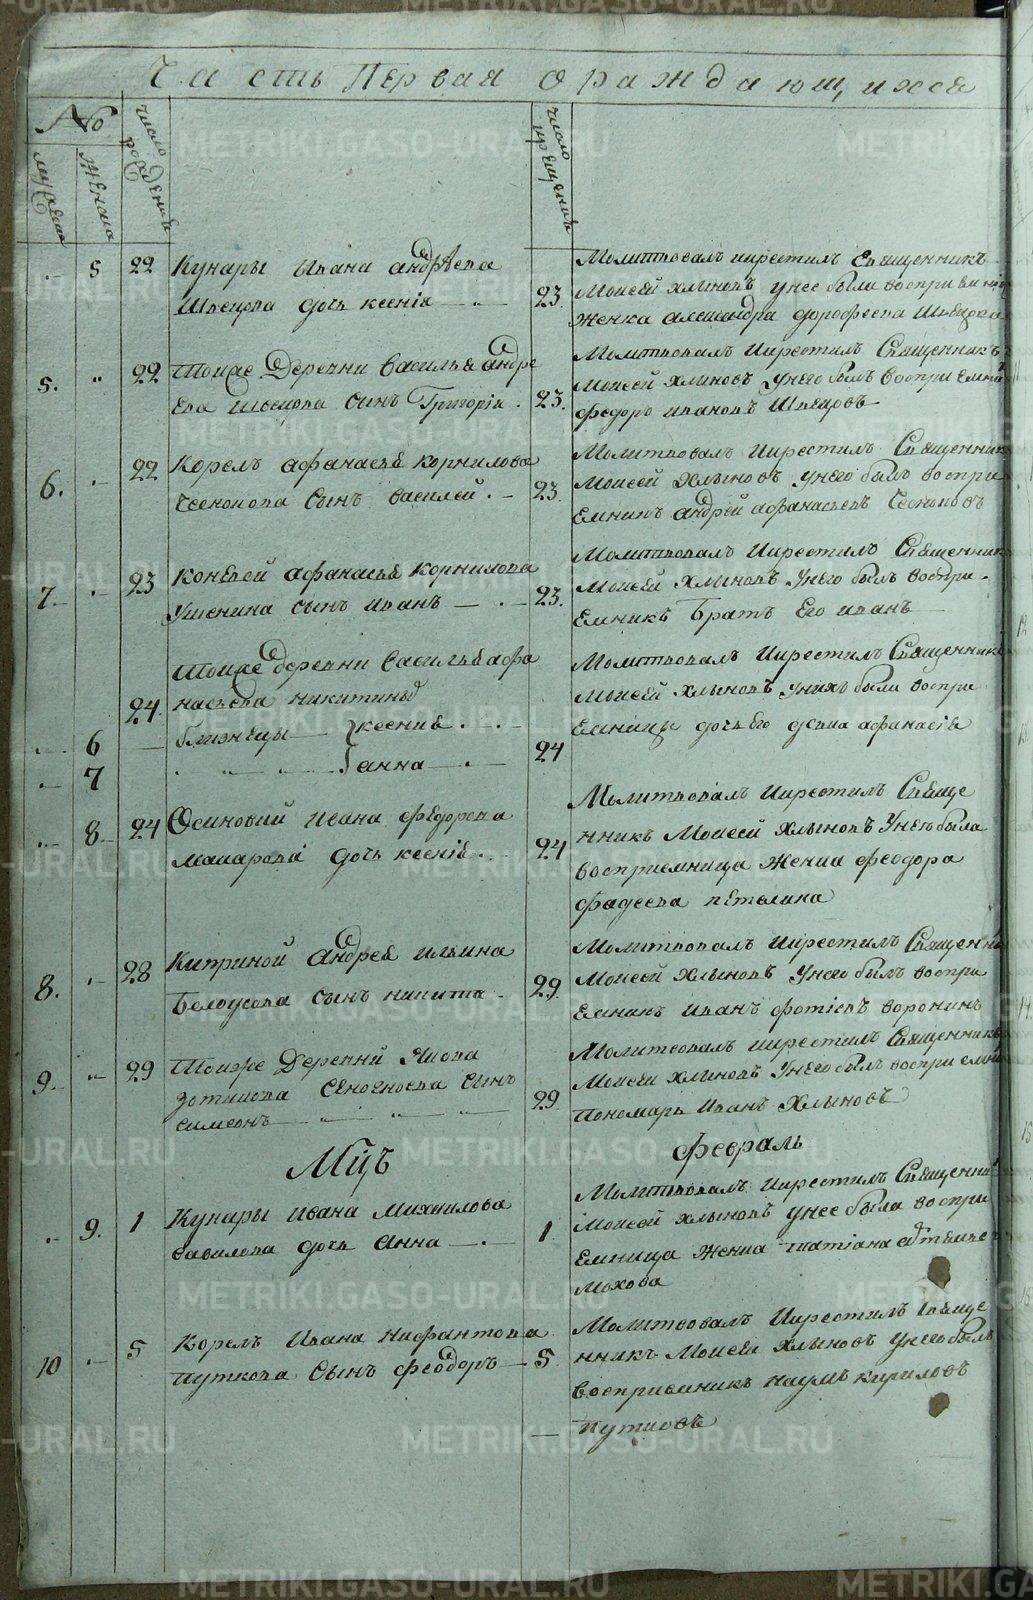 Часть Первая ораждающихся
№
мужеска
Женска
число рождения
число крещения
5 22 Кунары Ивана андреева
Швецова дочь ксенія
23
Молитвовалъ икрестилъ Священникъ
Моисей Хлыновъ унее были восприемни
Женка александра дорофеева Швецова
5. 22 Тоиже Деревни василья андре
ева Швецова сынъ Григорій.
23.
Молитвовалъ Икрестилъ Священникъ
Моисей Хлыновъ Унего былъ воспри емни
федоръ ивановъ Швецовъ
6. 22 Корелъ афанасья корнилова
сынъ василей.
23.
Молитвовалъ Икрестилъ Священник
Моисей Хлыновъ унего былъ воспри
емникъ андрей афанасьевъ
7. 23 Коневой афанасья Корнилова
Ушенина сынъ иванъ
23.
Молитвовалъ Икрестилъ Священник
Моисей Хлыновъ Унего былъ воспри.
емникъ Братъ Его иванъ
24 Тоиже деревни василья афа
насьева никитины
6 близнецы ксенія
7 анна
24
Молитвовалъ Икрестилъ Священникъ
Моисей Хлыновъ унихъ были воспри
емницы дочь его афанасія
8 24 Осиновий ивана федорова
макарова дочь ксенія.
24
Молитвовалъ Икрестилъ Свяще
нникъ Моисей Хлыновъ Унее была
восприемница жена феодора
фадеева петелина
8. 28 Киприной андрея ильина
Белоусова сынъ никита
29
Молитвовалъ Икрестилъ Священни
Моисей Хлыновъ унего былъ воспри
емникъ Иванъ фотіевъ воронинъ
9. 29 Тоиже Деревни Якова
зотикова сынъ
симеонъ
29
Молитвовалъ икрестилъ Священникъ
Моисей Хлыновъ Унего былъ воспри емни
Пономарь Иванъ Хлыновъ
Мцъ февраль
9. 1 Кунары ивана михаилова
савилова дочь анна
1
Молитвовалъ икрестилъ Священни
Моисей Хлыновъ унее была воспри
емница жена татіана
мохова
10 5 Корелъ Ивана нифантова
путкова Сынъ феодоръ
5.
Молитвовалъ Икрестилъ Свяще
нникъ Моисей Хлыновъ унего былъ
восприемникъ наумъ кириловъ
путковъ
METRIKI.GASO-URAL.RU